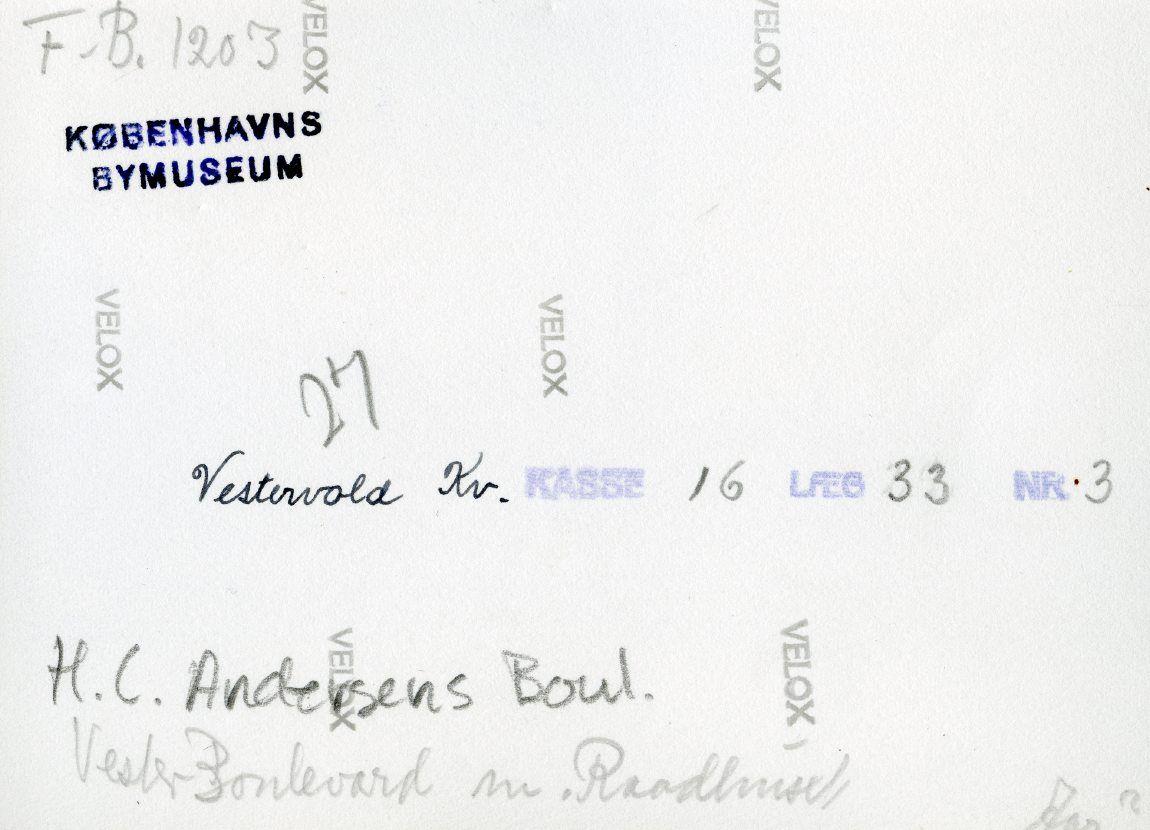 F.B. 1203
VELOX
VELOX
KØBENHAVNS
BYMUSEUM
VELOX
VELOX
27
Vestervold Kv. KASSE 16 LÆG 33 NR. 3
VELOX
VELOX
H.C. Andersens Boul.
Vester Boulevard m. Raadhuset